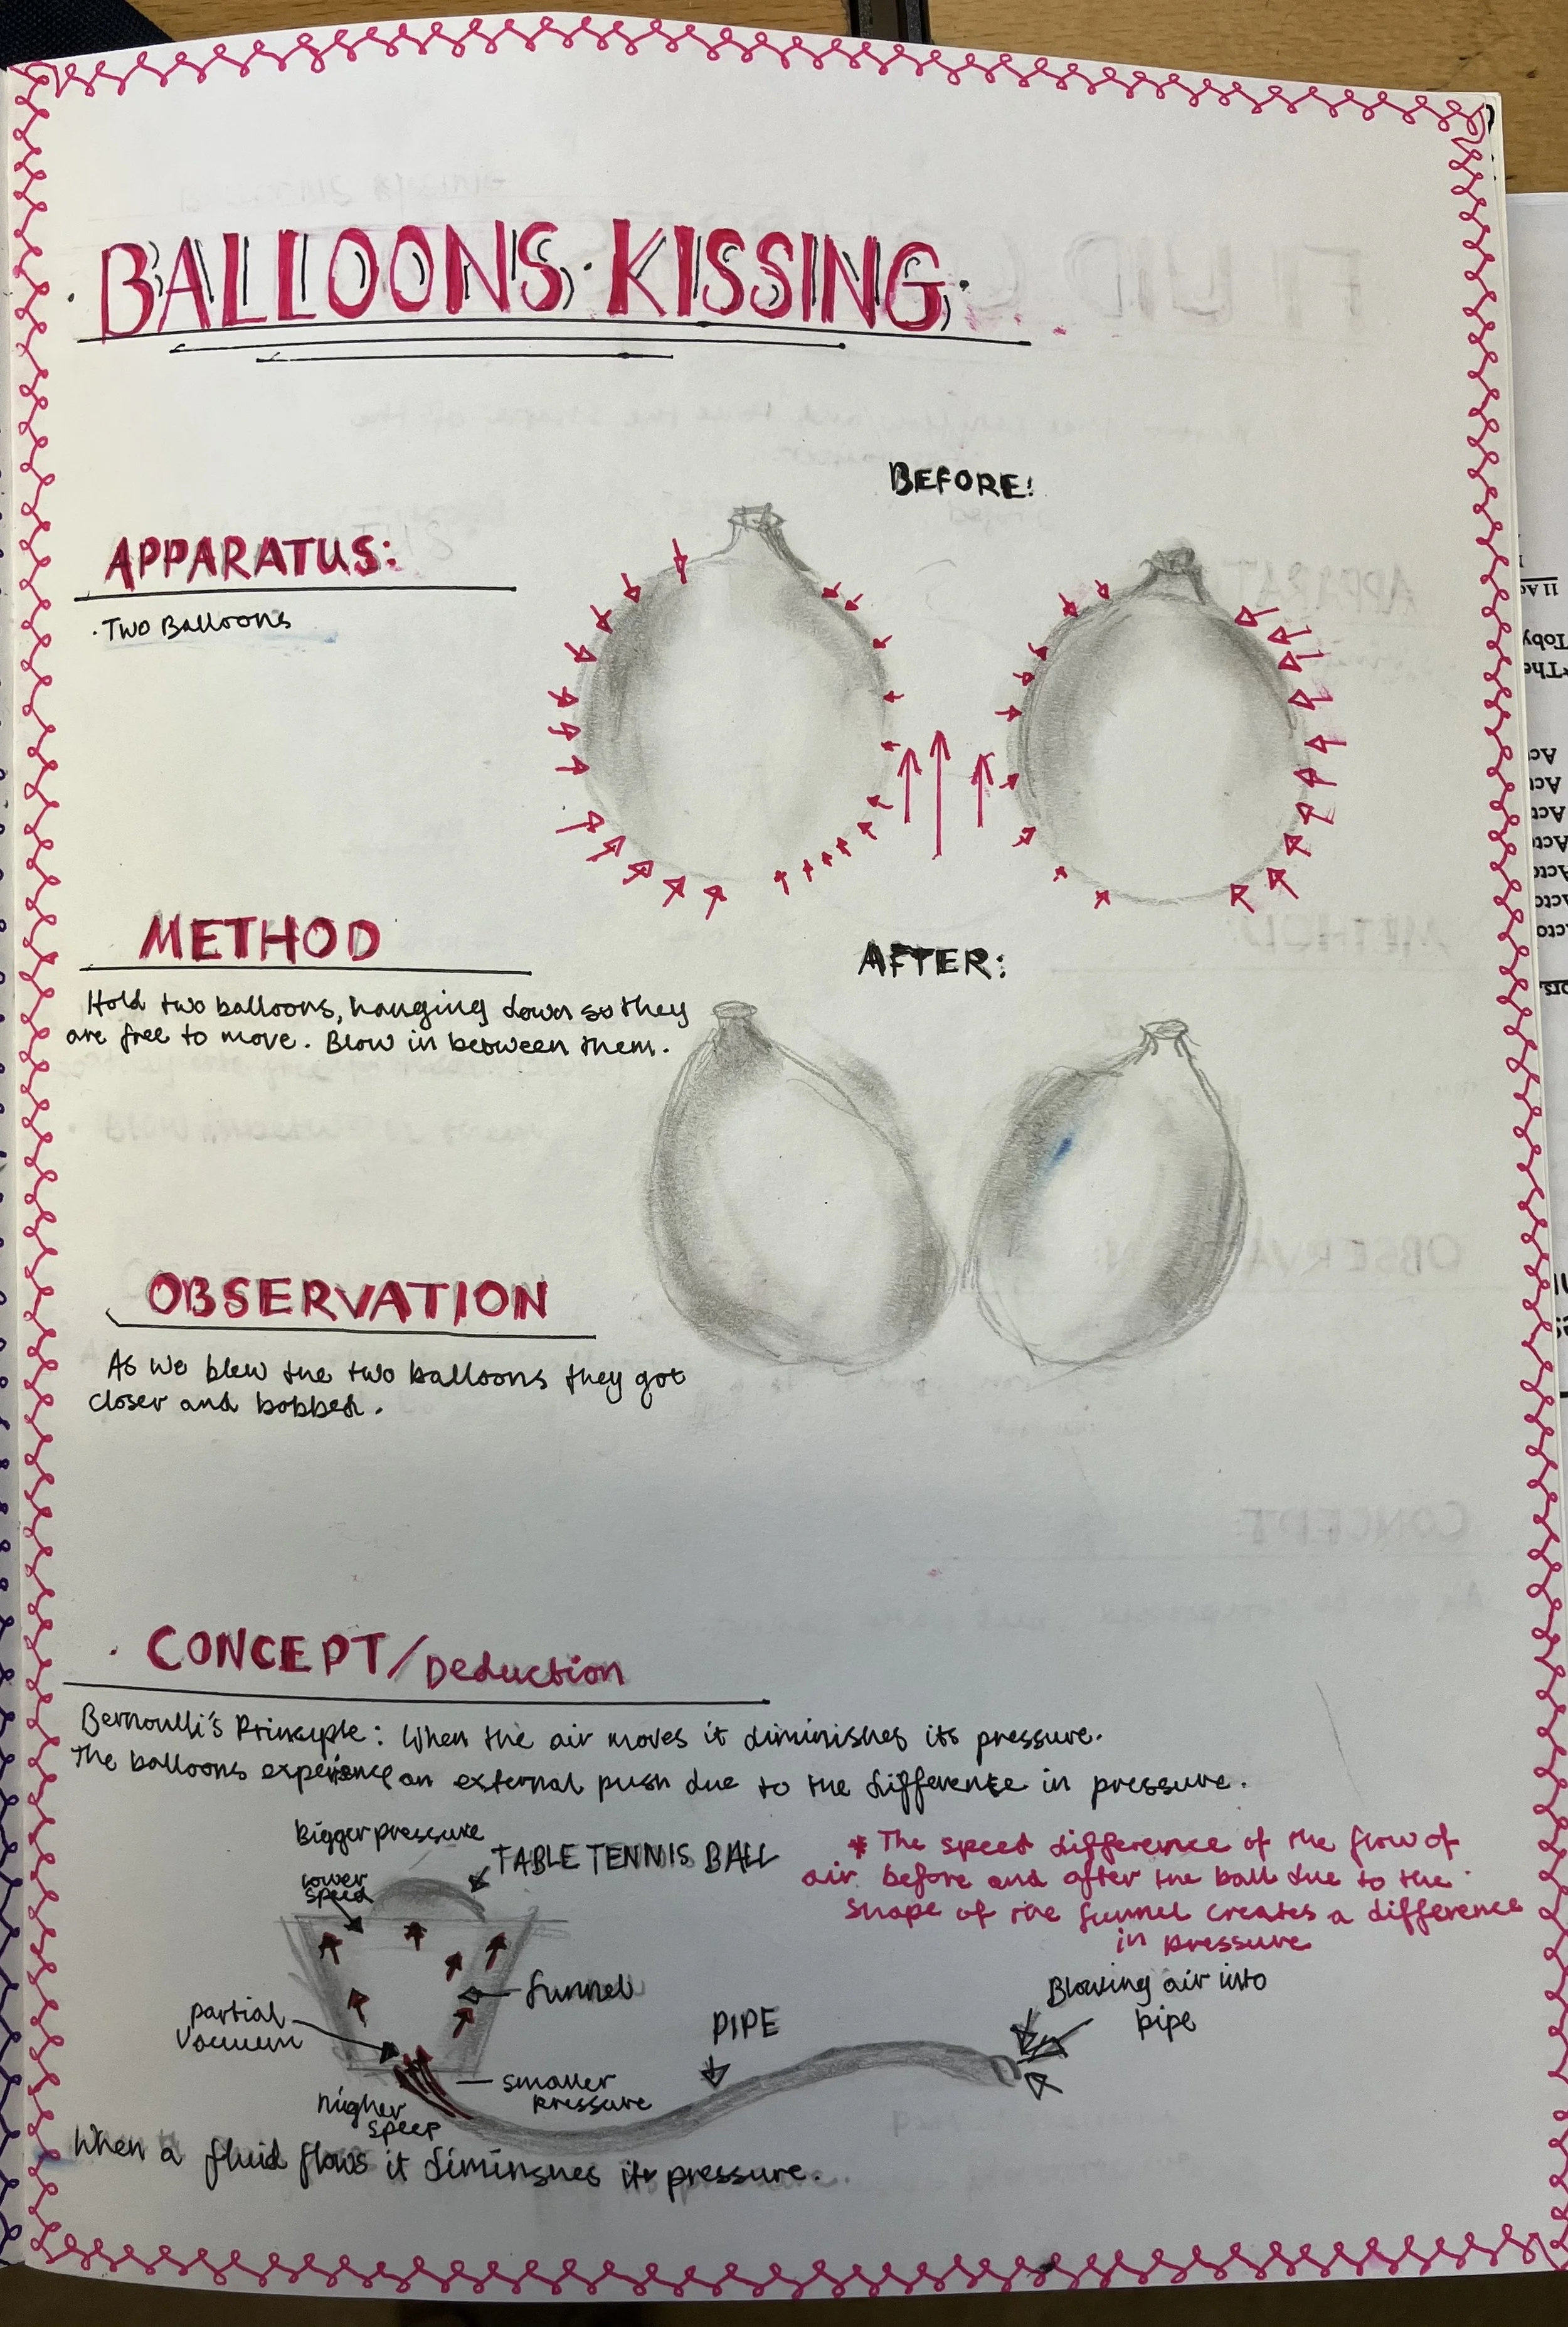 BALLOONS KISSING
BEFORE:
APPARATUS:
· Two Balloons
METHOD
Hold two balloons, hanging down so they
are free to move. Blow in between them.
AFTER:
OBSERVATION
As we blew the two balloons they got
closer and bobbed.
· CONCEPT/Deduction
Bernoulli's Principle: When the air moves it diminishes its pressure.
The balloons experience an external push due to the difference in pressure.
Bigger pressure
TABLE TENNIS BALL
lower
speed
* The speed difference of the flow of
air before and after the ball due to the
shape of the funnel creates a difference
in pressure
funnel
partial
vacuum
PIPE
Blowing air into
pipe
smaller
pressure
higher
speed
When a fluid flows it diminshes its pressure.